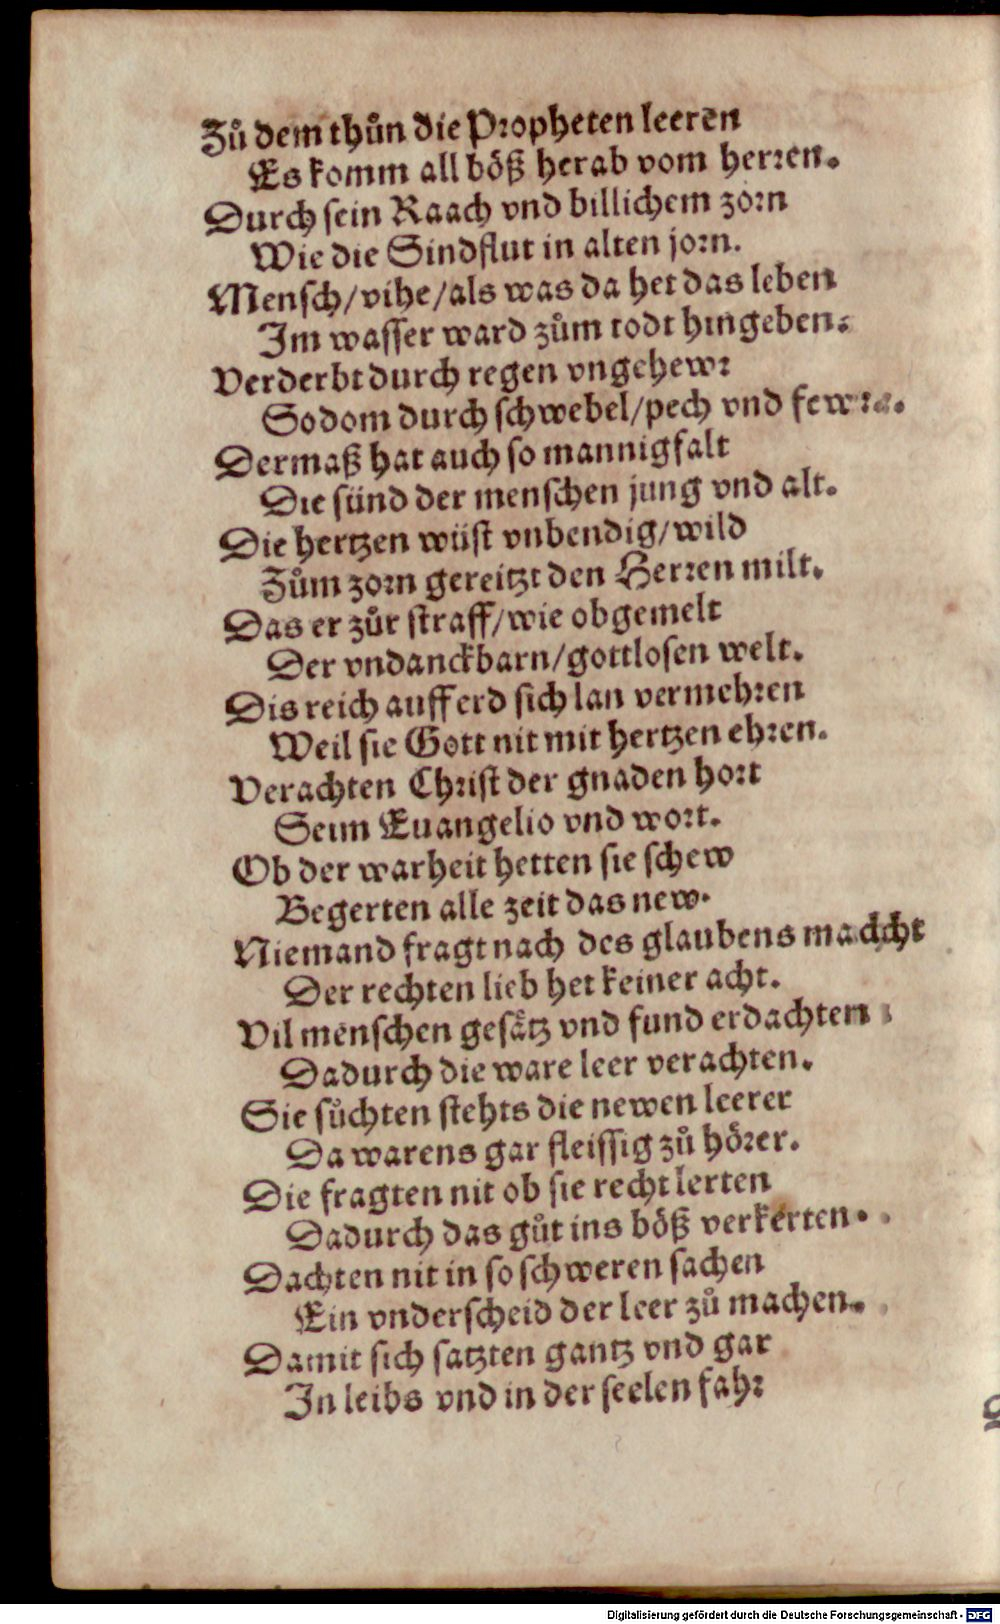 Zů dem thůn die Propheten leeren
Es komm all böß herab vom herren.
Durch sein Raach vnd billichem zorn
Wie die Sindflut in alten jorn.
Mensch/vihe/als was da het das leben
Im wasser ward zům todt hingeben.
Verderbt durch regen vngehewr
Sodom durch schwebel/pech vnd fewr.
Dermaß hat auch so mannigfalt
Die sünd der menschen jung vnd alt.
Die hertzen wüst vnbendig/wild
Zům zorn gereitzt den Herren milt.
Das er zůr straff/wie obgemelt
Der vndanckbarn/gottlosen welt.
Dis reich auff erd sich lan vermehren
Weil sie Gott nit mit hertzen ehren.
Verachten Christ der gnaden hort
Seim Euangelio vnd wort.
Ob der warheit hetten sie schew
Begerten alle zeit das new.
Niemand fragt nach des glaubens machcht
Der rechten lieb het keiner acht.
Vil menschen gesätz vnd fund erdachten
Dadurch die ware leer verachten.
Sie sůchten stehts die newen leerer
Da warens gar fleissig zů hörer.
Die fragten nit ob sie recht lerten
Dadurch das gůt ins böß verkerten.
Dachten nit in so schweren sachen
Ein vnderscheid der leer zů machen.
Damit sich satzten gantz vnd gar
In leibs vnd in der seelen fahr
Digitalisierung gefördert durch die Deutsche Forschungsgemeinschaft - DFG